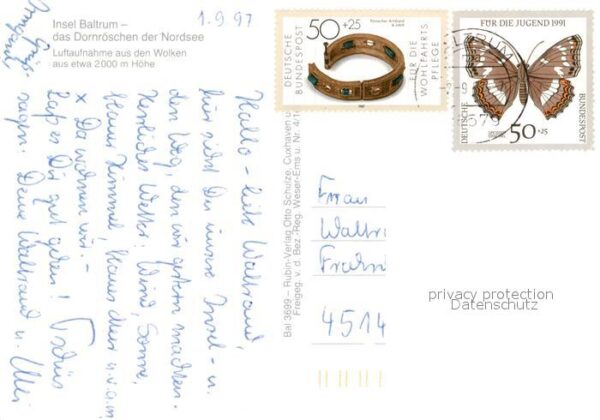 Insel Baltrum –
das Dornröschen der Nordsee
Luftaufnahme aus den Wolken
aus etwa 2000 m Höhe
1.9.97
Hallo – liebe Waltraud,
hier siehst Du unsere Insel – u.
den Weg, den wir gestern machten.
Herrliches Wetter: Wind, Sonne,
blauer Himmel, blaues Meer u.v.a.m
x Da wohnen wir. –
Lass es Dir gut gehen! Tschüs
sagen: Deine Waltraud u. Uli
Bal 3699 – Rubin-Verlag Otto Schulze, Cuxhaven
Freigeg. v. d. Bez.-Reg. Weser-Ems u. Nr. 4/
50+25
DEUTSCHE
BUNDESPOST
FÜR DIE
WOHLFAHRTS
PFLEGE
FÜR DIE JUGEND 1991
DEUTSCHE
BUNDESPOST
50+25
Frau
4514
privacy protection
Datenschutz